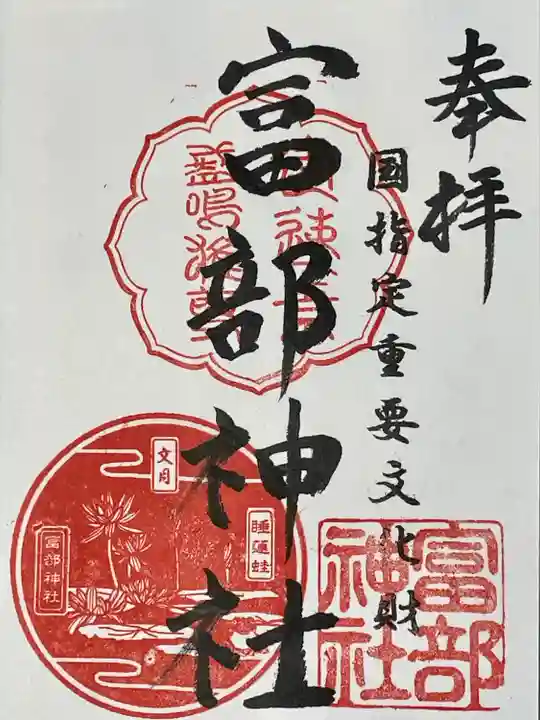 奉拝
国指定重要文化財
富部神社
文月
睡蓮蛙
富部神社
富部
神社